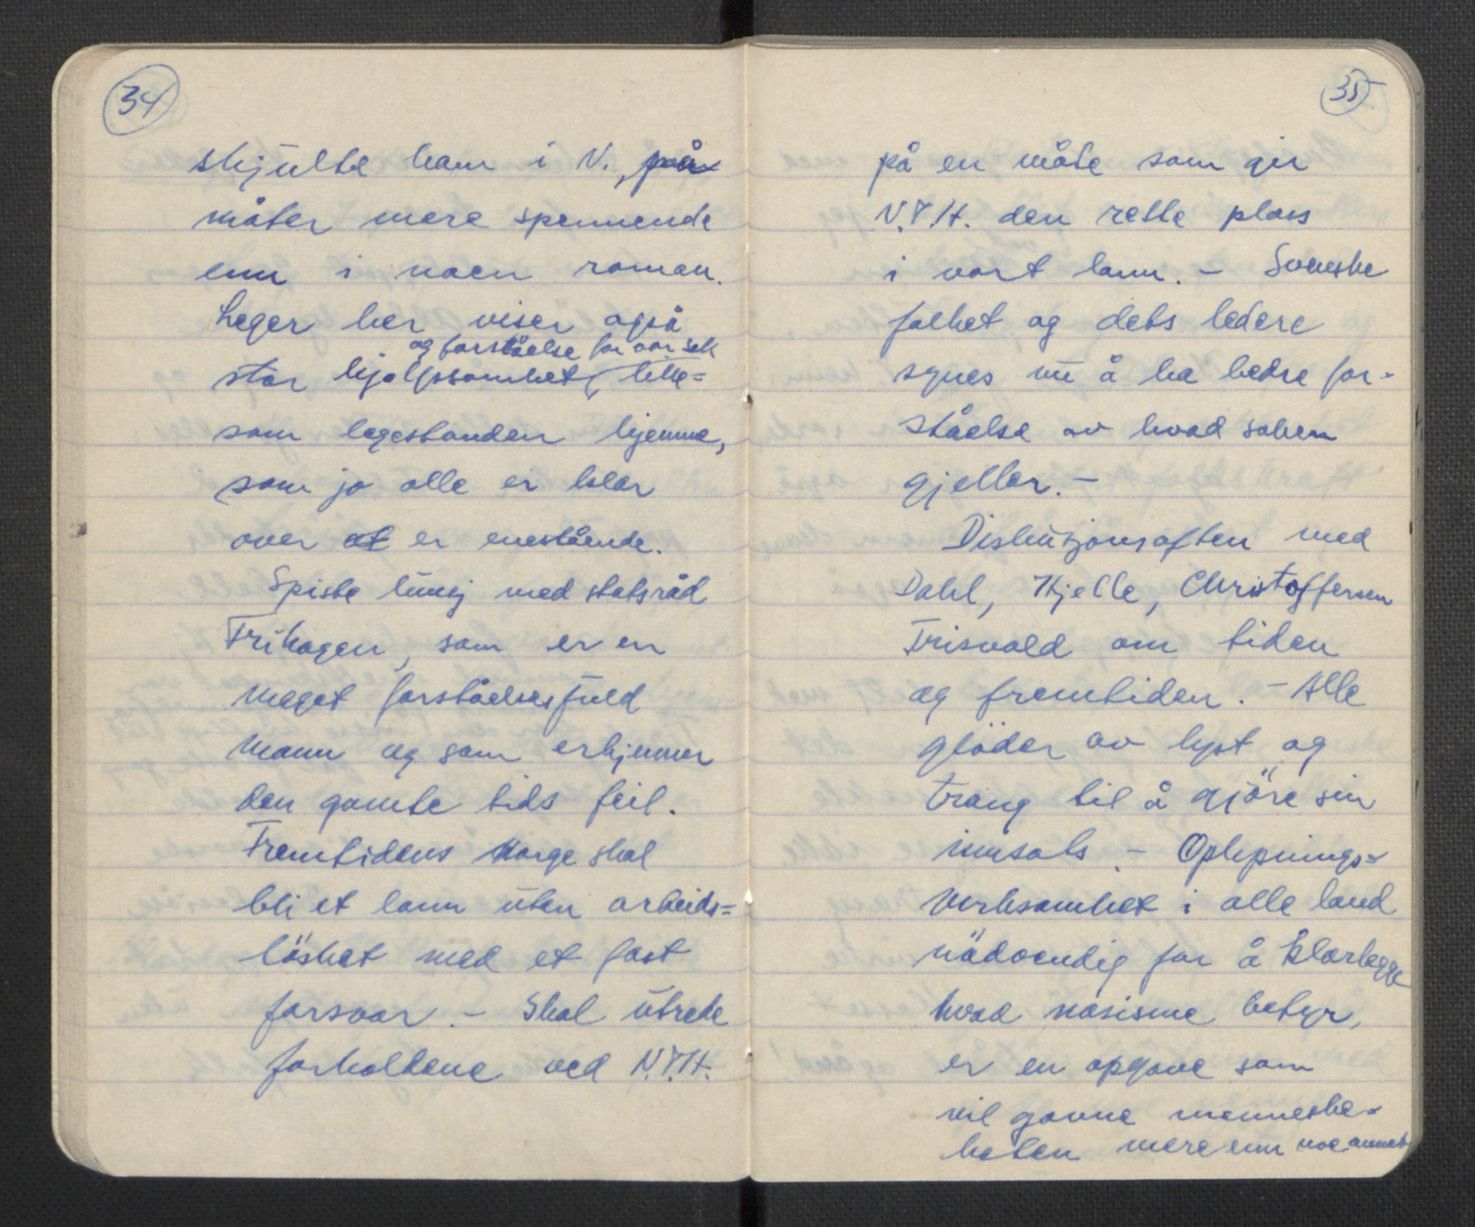 34
skjulte ham i N., på
måter mere spennende
enn i noen roman.
Leger her viser også
og forståelse for vor sak
stor hjelpsomhet, like=
som legestanden hjemme,
som jo alle er klar
over at er enestående.
Spiste lunsj med statsråd
Frihagen, som er en
meget forståelsesfuld
mann og som erkjenner
den gamle tids feil.
Fremtidens Norge skal
bli et lann uten arbeids=
löshet med et fast
forsvar. – Skal utrede
forholdene ved N.T.H.
35
på en måte som gir
N.T.H. den rette plass
i vort lann. – Svenske
folket og dets ledere
synes nu å ha bedre for-
ståelse av hvad saken
gjeller. –
Diskusjonsaften med
Dahl, Kjelle, Christoffersen
Frisvold om tiden
og fremtiden. – Alle
glöder av lyst og
trang til å gjöre sin
innsats. – Oplysnings=
virksomhet i alle land
nödvendig for å klarlegge
hvad nasisme betyr,
er en opgave som
vil gavne menneske-
heten mere enn noe annet